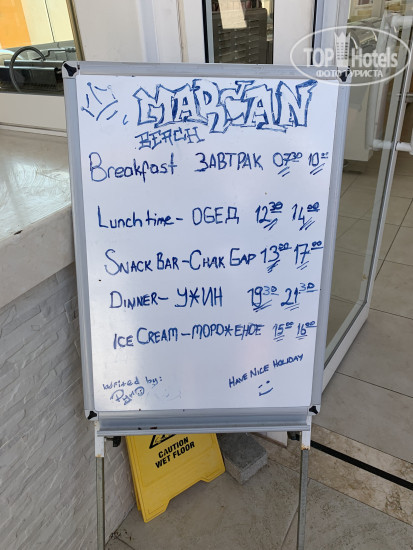 TOP Hotels
ФОТО ТУРИСТА
MARCAN
BEACH
Breakfast ЗАВТРАК 07³⁰ 10⁰⁰
Lunch time - ОБЕД 12³⁰ 14⁰⁰
SNACK BAR - СНАК БАР 13⁰⁰ 17⁰⁰
DINNER - УЖИН 19³⁰ 21³⁰
ICE CREAM - МОРОЖЕНОЕ 15⁰⁰ 16⁰⁰
HAVE NICE HOLIDAY
writed by:
CAUTION
WET FLOOR